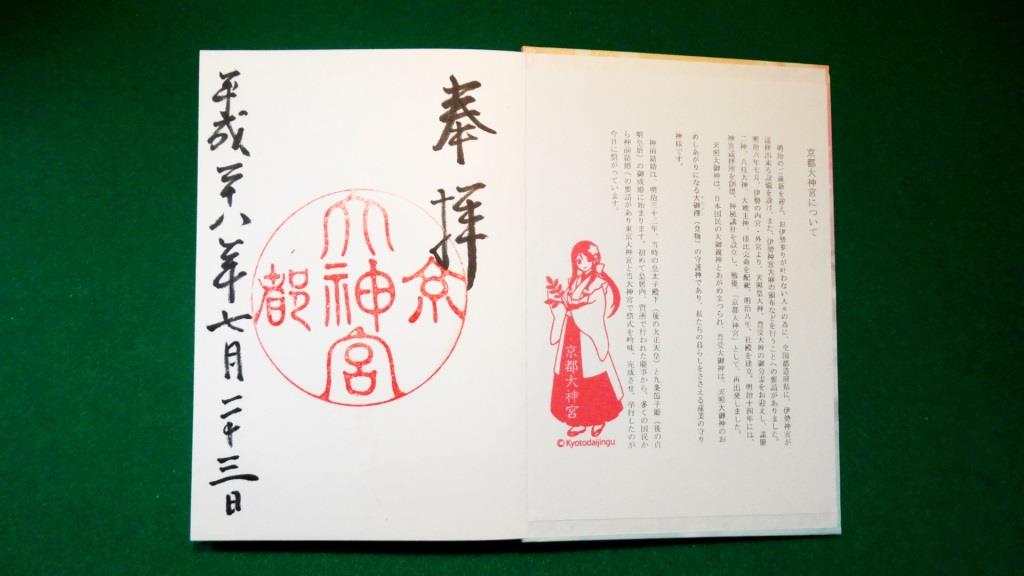 京都大神宮について
明治のご維新を迎え、お伊勢参りが叶わない人々の為に、全国都道府県に、伊勢神宮が
遥拝出来る設備を設け、また、伊勢神宮大麻の頒布などを行うことへの要請がありました。
明治八年七月、伊勢の内宮・外宮より、天照皇大神、豊受大神の御分霊をお迎えし、諾
二神、八柱大神、大地主神、倭比売命を配祀。明治八年、社殿を建立。明治十四年には、
神宮遥拝所を創建、神風講社を設立し、戦後、「京都大神宮」として、再出発しました。
天照大御神は、日本国民の大御親神とあがめまつられ、豊受大御神は、天照大御神のお
めしあがりになる大御饌(食物)の守護神であり、私たちの暮らしをささえる産業の守り
神様です。
神前結婚は、明治三十三年、当時の皇太子殿下(後の大正天皇)と九条節子姫(後の貞
明皇后)の御成婚に始まります。初めて皇居内、賢所で行われた慶事から、多くの国民か
ら神前結婚への要請があり東京大神宮と当大神宮で祭式を吟味、完成させ、挙行したのが
今日に繋がっています。
京都大神宮
©Kyotodaijingu
奉拝
京
大神宮
都
平成二十八年七月二十三日